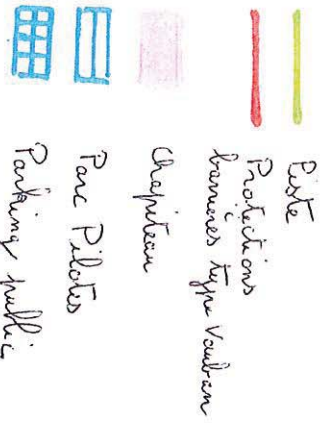 Piste
Protections
barrières type Vauban
Chapiteau
Parc Pilotes
Parking public